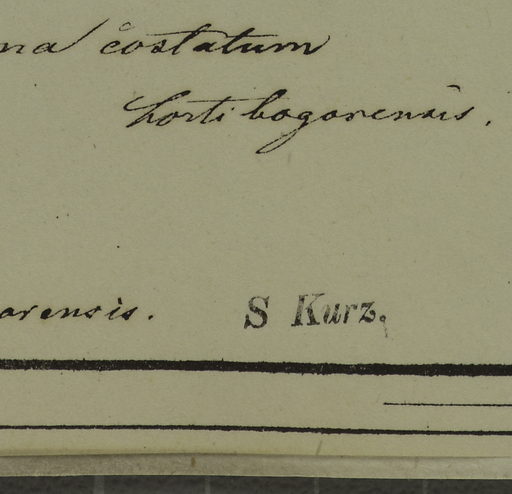 na costatum
horti bogorensis.
orensis. S Kurz.